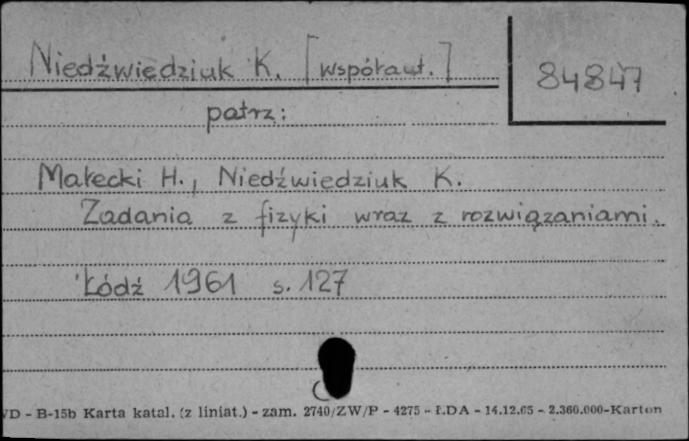 Niedźwiedziuk K. [współaut.]
84847
patrz:
Małecki H., Niedźwiedziuk K.
Zadania z fizyki wraz z rozwiązaniami.
Łódź 1961 s. 127
VD - B-15b Karta katal. (z liniat.) - zam. 2740/ZW/P - 4275 - ŁDA - 14.12.65 - 2.360.000-Karton